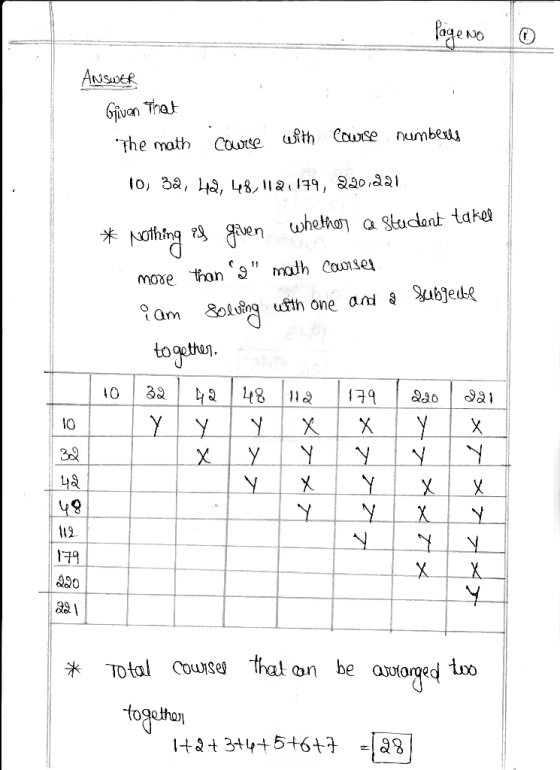 Page No 1
ANSWER
Given That
The math course with course numbers
10, 32, 42, 48, 112, 179, 220, 221
* Nothing is given whether a student takes
more than "2" math courses
i am solving with one and 2 subjects
together.
10 32 42 48 112 179 220 221
10 Y Y Y X X Y X
32 X Y Y Y Y Y
42 Y X Y X X
48 Y Y X Y
112 Y Y Y
179 X X
220 Y
221
* Total courses that can be arranged two
together
1+2+3+4+5+6+7 = 28